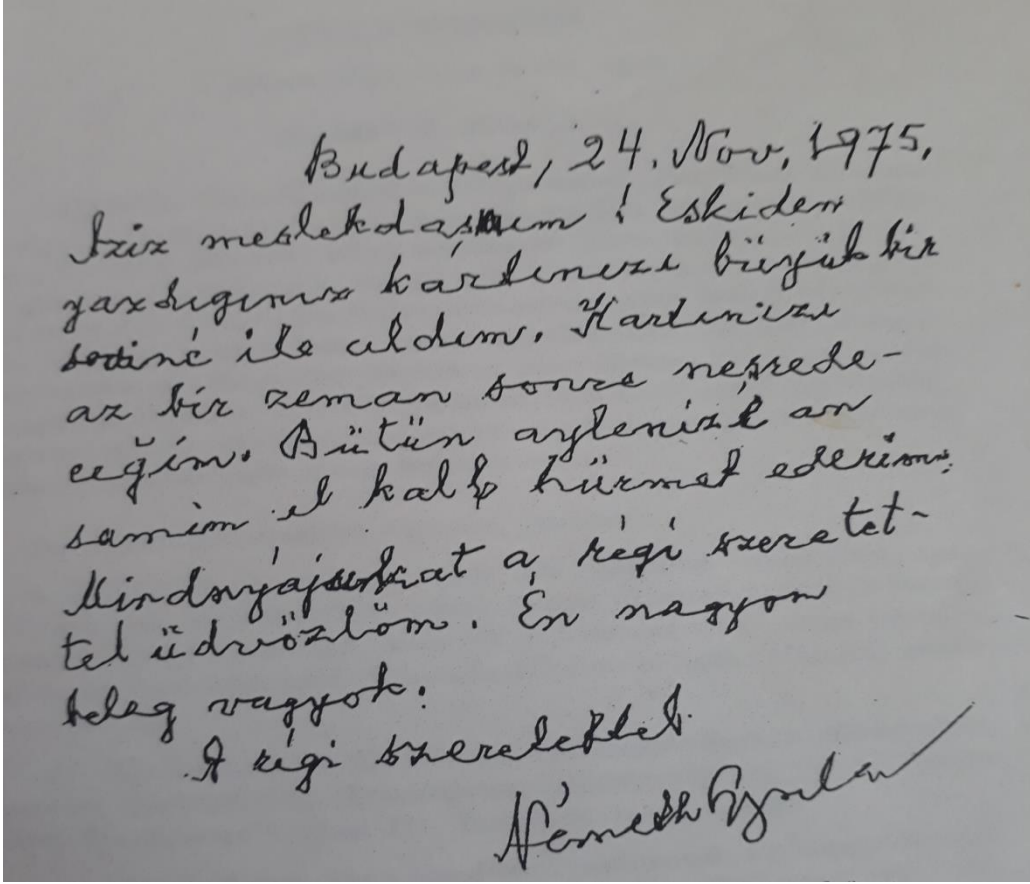 Budapest, 24. Nov. 1975.
Aziz meslekdaşım ! Eskiden
yazdıgınız kartınızı büyük bir
sevinç ile aldım. Kartınızı
az bir zeman sonra neşrede-
ceğim. Bütün aylenizi an
samim el kalb hürmet ederim.
Mindnyájukat a régi szeretet-
tel üdvözlöm. Én nagyon
beteg vagyok.
A régi szeretettel
Németh Gyula